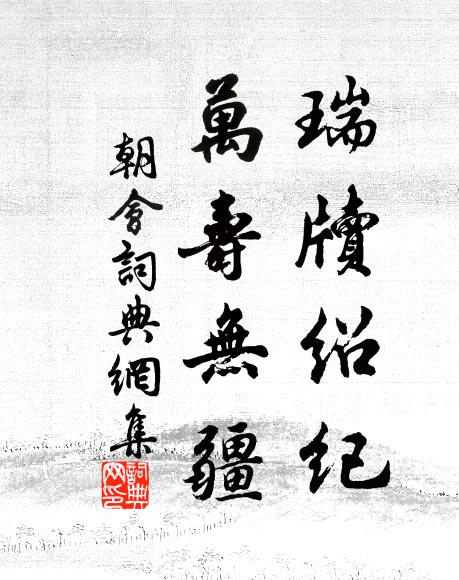 瑞牘紹紀
萬壽無疆
朝會詞典網集
詞典網印